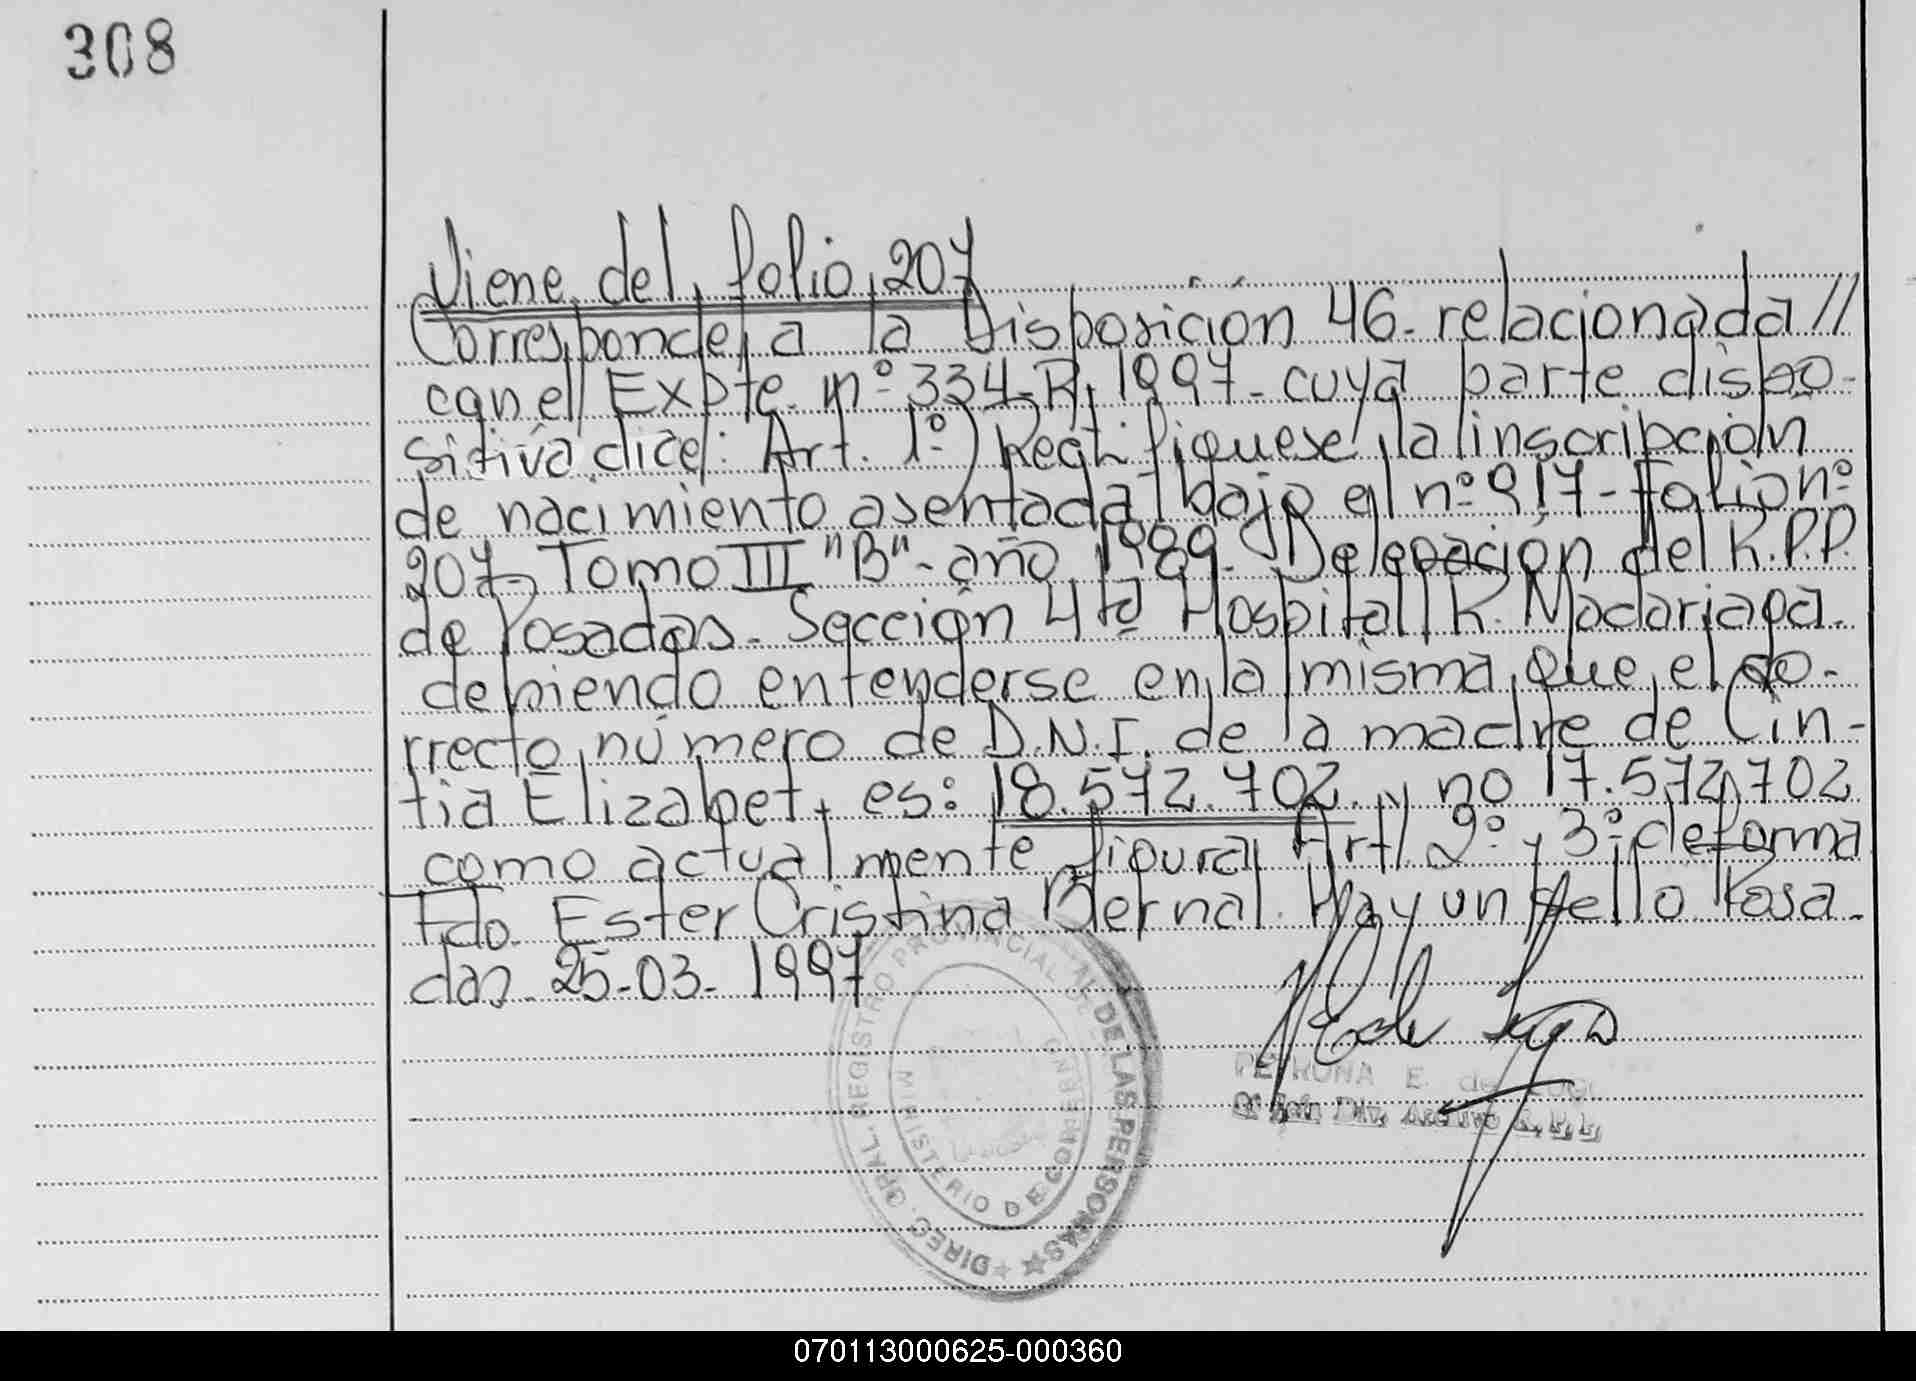 308
Viene del folio 207
Corresponde a la Disposición 46- relacionada //
con el Expte. nº 334-R, 1997- cuya parte dispo-
sitiva dice: Art. 1º) Rectifíquese la inscripción
de nacimiento asentada bajo el nº 917- Folio nº
207- Tomo III "B"- año 1989- Delegación del R.P.P.
de Posadas- Sección 4ta Hospital R. Madariaga.
debiendo entenderse en la misma que el co-
rrecto número de D.N.I. de la madre de Cin-
tia Elizabet, es: 18.572.702. y no 17.572.702
como actualmente figura. Art. 2º y 3º: de forma
Fdo. Ester Cristina Bernal. Hay un sello Posa-
das 25-03-1997
DIREC. GRAL. REGISTRO PROVINCIAL DE LAS PERSONAS
MINISTERIO DE GOBIERNO
PETRONA E. de
070113000625-000360